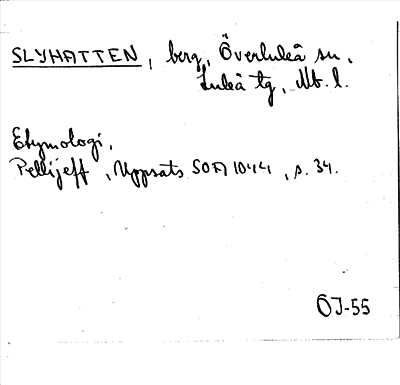 SLYHATTEN, berg, Överluleå sn,
Luleå tg, Nb. l.
Etymologi,
Pellijeff, Uppsats SOFI 1044, s. 34.
ÖJ-55